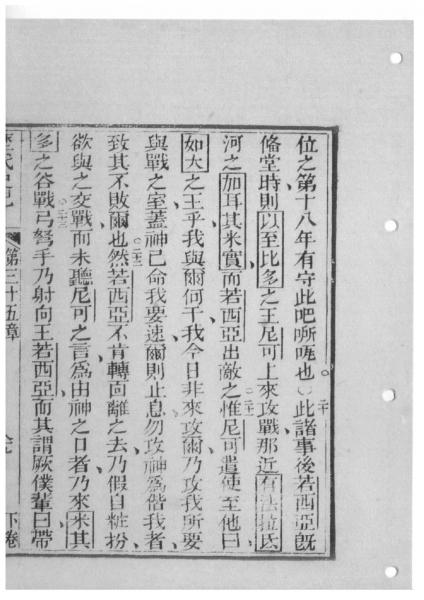 位之第十八年有守此吧也○二十此諸事後若西亞既
脩堂時則以至比多之王尼可上來攻戰那近有法拉氐
河之加耳其米實而若西亞出敵之二十一惟尼可遣使至他曰
如大之王乎我與爾何干我今日非來攻爾乃攻我所要
與戰之室蓋神已命我要速爾則止息勿攻神為偕我者
致其不敗爾也二十二然若西亞不肯轉向離之去乃假自粧扮
欲與之交戰而未聽尼可之言為由神之口者乃來米其
多之谷戰二十三弓弩手乃射向王若西亞而其謂厥僕輩曰帶
第三十五章 下卷